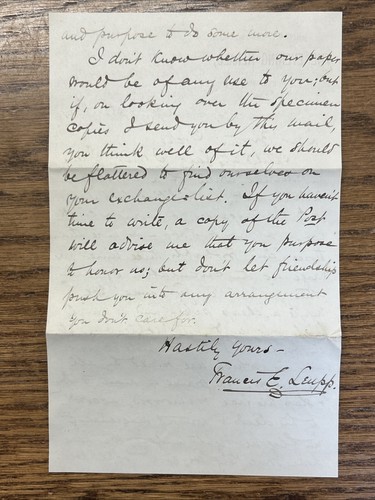 and purpose to do some more.
I don't know whether our paper
would be of any use to you; but
if, on looking over the specimen
copies I send you by this mail,
you think well of it, we should
be flattered to find ourselves on
your exchange-list. If you haven't
time to write, a copy of the Post
will advise me that you purpose
to honor us; but don't let friendship
push you into any arrangement
you don't care for.
Hastily yours—
Francis E. Leupp.